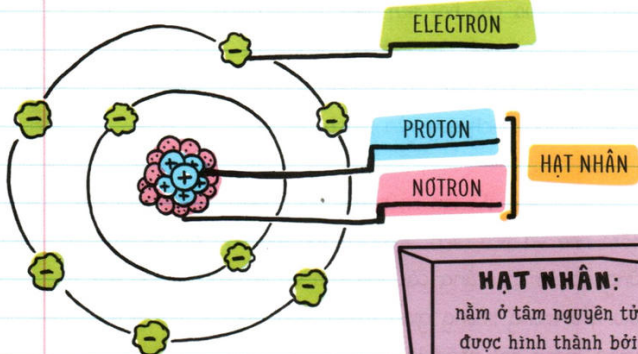 ELECTRON
PROTON
NƠTRON
HẠT NHÂN
HẠT NHÂN:
nằm ở tâm nguyên tử
được hình thành bởi